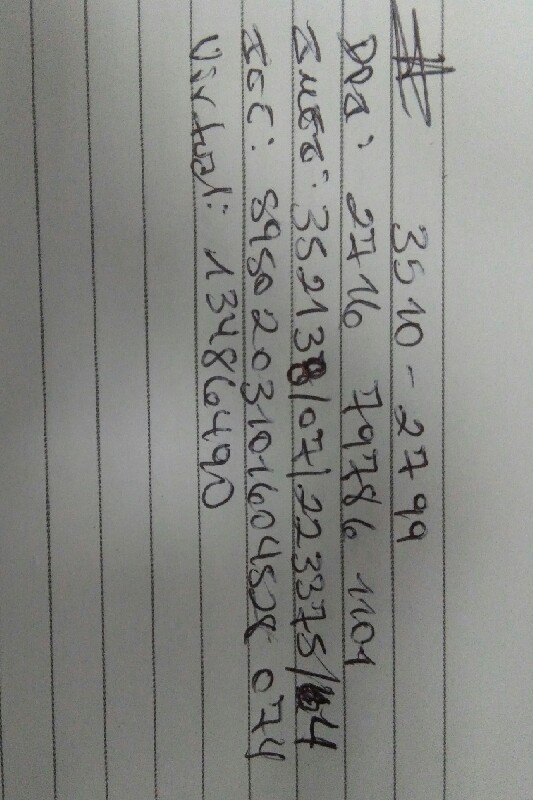 # 3510-2799
DPI: 2716 79786 1101
IMEI: 352138/07/223375/4
ICC: 8950203101604528 074
Virtual: 13486490